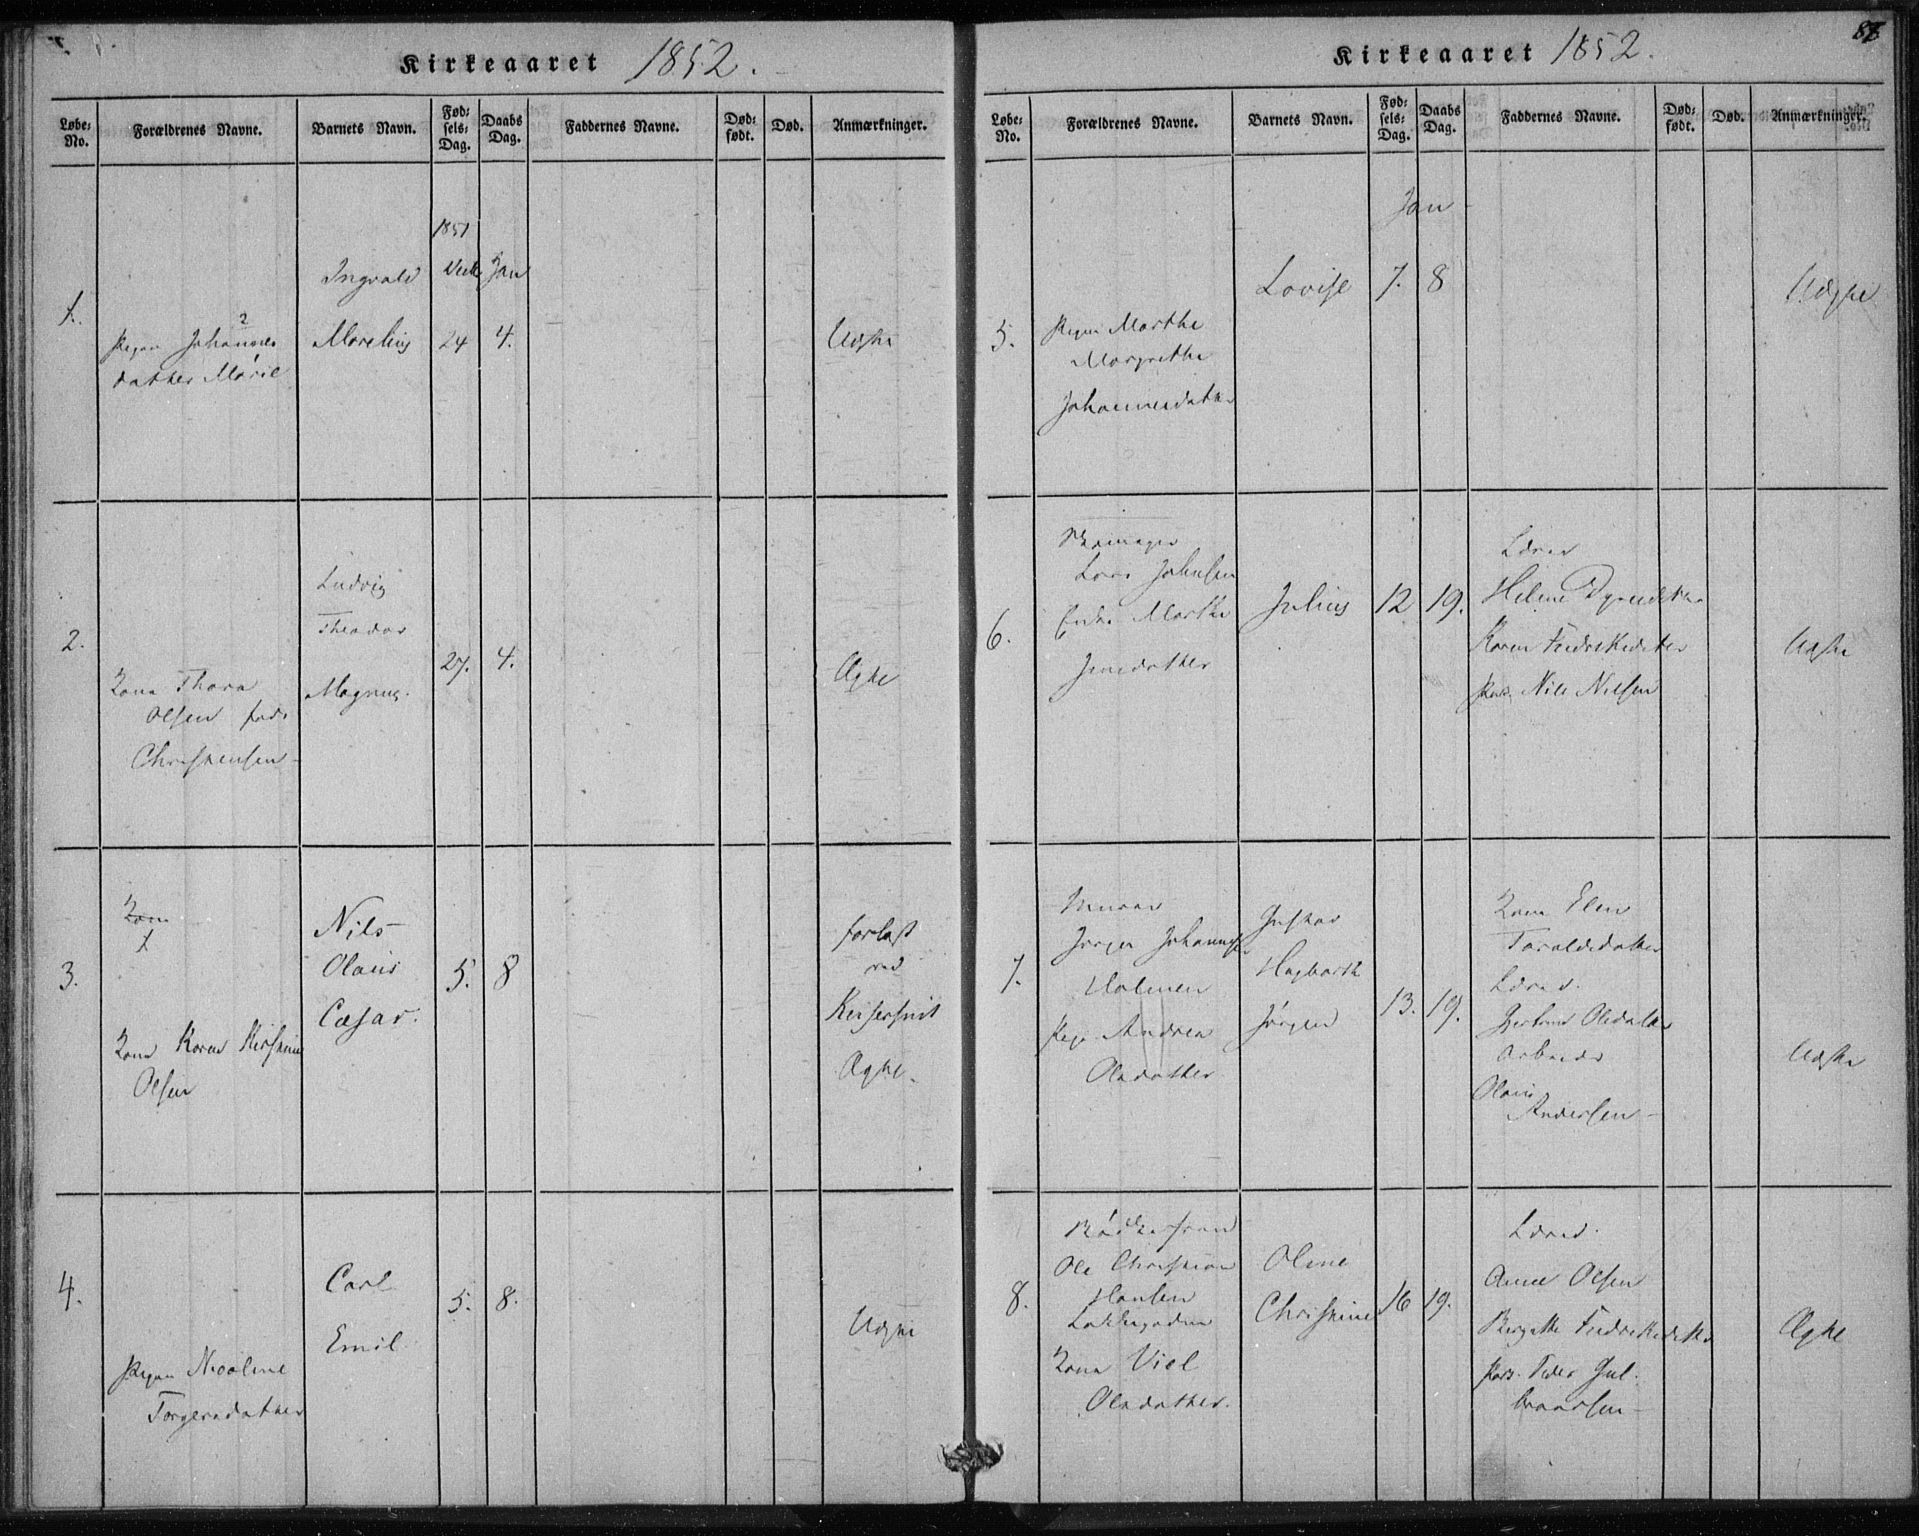 Kirkeaaret 1852.
Løbe-No.
Forældrenes Navne.
Barnets Navn.
Fød-sels-Dag.
Daabs Dag.
Faddernes Navne.
Død-født.
Død.
Anmærkninger.
1.
Pigen Johannes
datter Marie
Ingvald
Marelius
1851
24
Jan
4.
Uægte
2.
Kone Thora
Olsen født
Christensen
Ludvig
Theodor
Magnus.
27.
4.
Ægte
3.
Kone
Kone Karen Kirstine
Olsen
Nils
Olaus
Cæsar.
5.
8
forløst
ved
Keisersnit
Ægte.
4.
Pigen Nicoline
Torgersdatter
Carl
Emil
5.
8.
Uægte
Kirkeaaret 1852.
Løbe-No.
Forældrenes Navne.
Barnets Navn.
Fød-sels-Dag.
Daabs Dag.
Faddernes Navne.
Død-født.
Død.
Anmærkninger.
5.
Pigen Marthe
Margrethe
Johannesdatter
Lovise
Jan
7.
8
Uægte
6.
Skomager
Lars Johnsen
Enke Marthe
Jensdatter
Julius
12
19.
Helene
Karen Fredriksdatter
Nils Nielsen
Uægte
7.
Murer
Jørgen Johannes
Holmen
Pige Andrea
Olsdatter
Gustav
Hagbarth
Jørgen
13.
19.
Kone Elen
Taraldsdatter
Gjertrud Olsdatter
Arbeider
Olaus
Andersen
Uægte
8.
Bødkersvend
Ole Christian
Hansen
Kone
Olsdatter.
Oline
Christine
16
19.
Anne Olsen
Bergitte Fredriksdatter
Peder Gul-
brandsen
Ægte